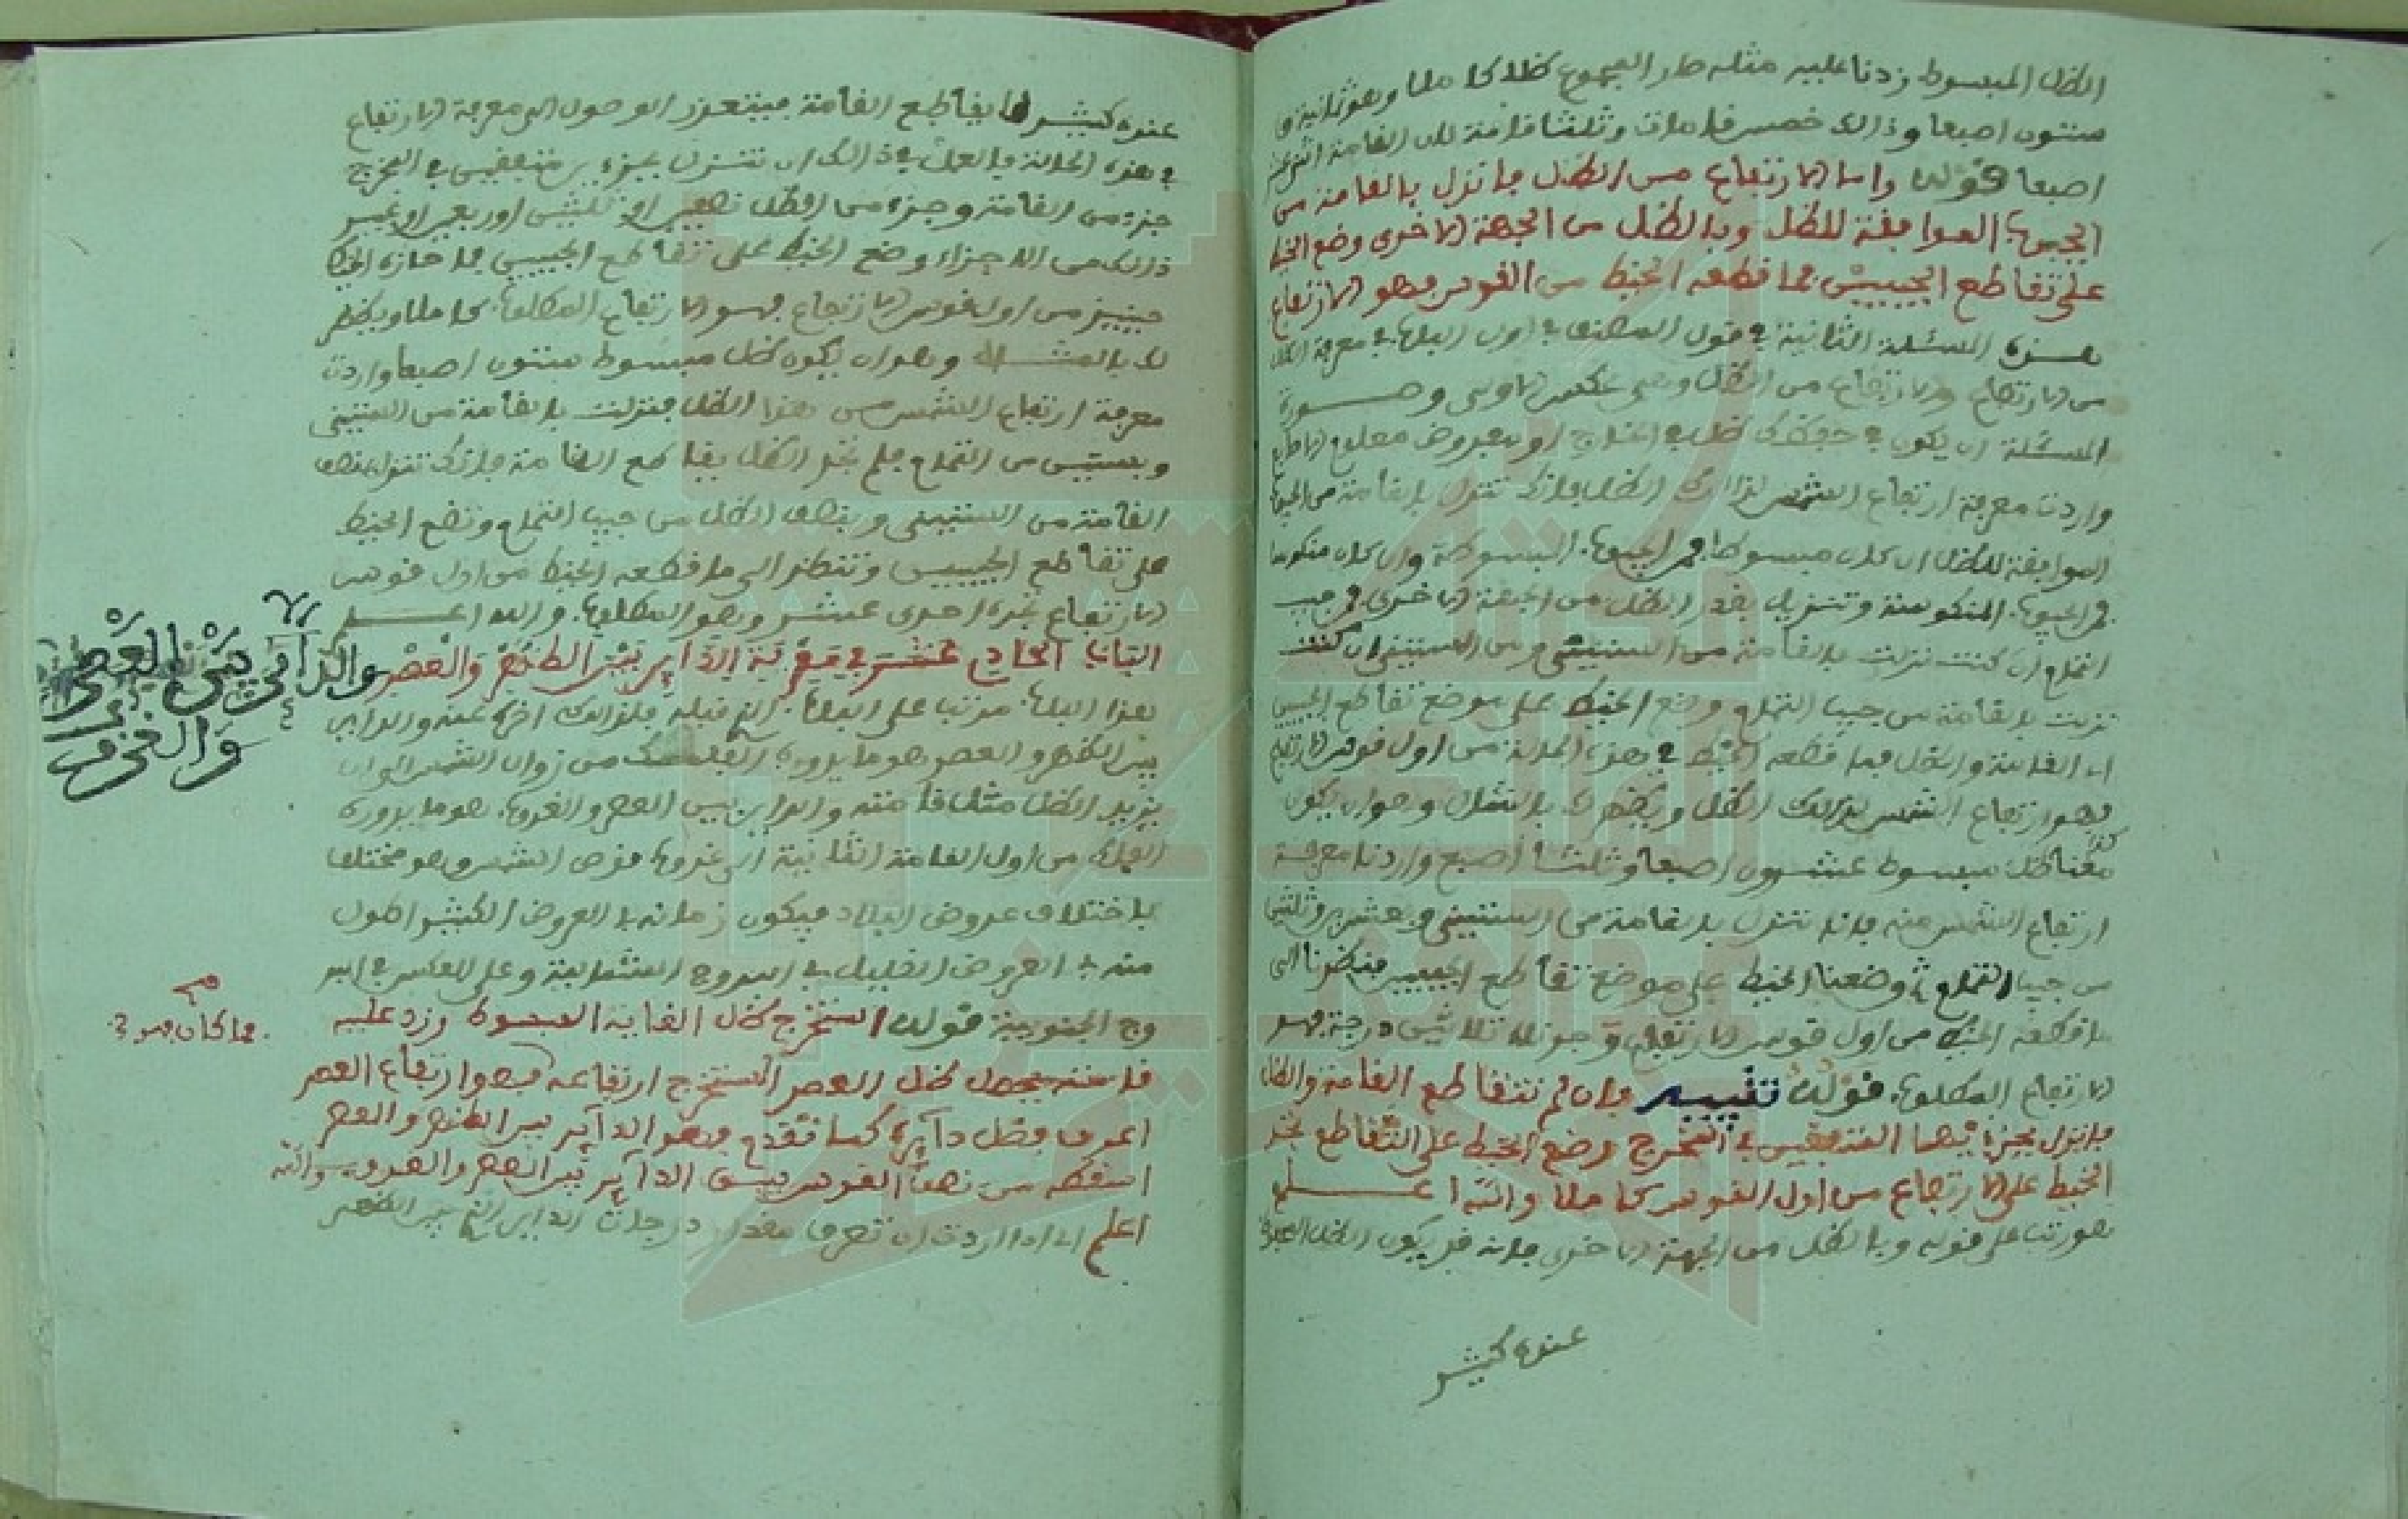 الظل المبسوط زدنا عليه مثله صار المجموع ظلا كاملا وهو ثمانية و
ستون اصبعا وذالك خمس قامات وثلثا قامة لان القامة اثنى عشر
اصبعا قوله واما الارتفاع من الظل فانزل بالقامة من
الجيوب الموافقة للظل وبالظل من الجهة الاخرى وضع الخيط
على تقاطع الجيبين فما قطعه الخيط من القوس فهو الارتفاع
هذه المسئلة الثانية في قول المصنف في اول الباب في معرفة الظل
من الارتفاع والارتفاع من الظل وهي عكس الاولى وصورة
المسئلة ان يكون في حفظك ظل في الخارج او مفروض معلوم الاصابع
واردت معرفة ارتفاع الشمس لذالك الظل فانك تنزل بالقامة من الجيوب
الموافقة للظل ان كان مبسوطا فمن الجيوب المبسوطة وان كان منكوسا
فمن الجيوب المنكوسة وتنزل بقدر الظل من الجهة الاخرى فمن جيب
التمام ان كنت نزلت بالقامة من الستيني ومن الستيني ان كنت
نزلت بالقامة من جيب التمام وضع الخيط على موضع تقاطع الجيبين
اي القامة والظل فما قطعه الخيط في هذه الحالة من اول قوس الارتفاع
فهو ارتفاع الشمس لذالك الظل ويظهر لك بالمثال وهو ان يكون
معنا ظل مبسوط عشرون اصبعا وثلثا اصبع واردنا معرفة
ارتفاع الشمس منه فاننا ننزل بالقامة من الستيني وبعشرين وثلثي
من جيب التمام ثم وضعنا الخيط على موضع تقاطع الجيبين فنظرنا الى
ما قطعه الخيط من اول قوس الارتفاع فوجدناه ثلاثين درجة فهو
الارتفاع المطلوب قوله تنبيه وان لم تتقاطع القامة والظل
فانزل بجزء منهما المتفقين في المخرج وضع الخيط على التقاطع تجد
الخيط على الارتفاع من اول القوس كاملا والله اعلم
هو رتب على قوله وبالظل من الجهة الاخرى فانه قد يكون الظل المبسوط
عنده كثير
عنده كثير لا يقاطع القامة فيتعذر الوصول الى معرفة الارتفاع
في هذه الحالة فالعمل في ذالك ان تنزل بجزءين متفقين في المخرج
جزء من القامة وجزء من الظل نصفين او ثلثين او ربعين او غير
ذالك من الاجزاء وضع الخيط على تقاطع الجيبين فما حازه الخيط
حينئذ من اول قوس الارتفاع فهو الارتفاع المطلوب كاملا ويظهر
لك بالمثال وهو ان يكون ظل مبسوط ستون اصبعا واردت
معرفة ارتفاع الشمس من هذا الظل فنزلت بالقامة من الستيني
وبستين من التمام فلم تجد الظل يقاطع القامة فانك تنزل بنصف
القامة من الستيني وبنصف الظل من جيب التمام وتضع الخيط
على تقاطع الجيبين وتنظر الى ما قطعه الخيط من اول قوس
الارتفاع تجده احدى عشر وهو المطلوب والله اعلم
الباب الحادي عشر في معرفة الدآير بين الظهر والعصر
والدآير بين العصر
والغروب
هذا الباب مرتب على الباب الذي قبله فلذالك اخره عنه والداير
بين الظهر والعصر هو ما يدوره الفلك من زوال الشمس الى ان
يزيد الظل مثل قامته والداير بين العصر والغروب هو ما يدوره
الفلك من اول القامة الثانية الى غروب قرص الشمس وهو مختلف
باختلاف عروض البلاد فيكون زمانه بالعروض الكثير اطول
منه بالعروض القليل في البروج الشمالية وعلى العكس في البر
وج الجنوبية قوله استخرج ظل الغاية المبسوط وزد عليه
فما كان فهو
قامته يحصل ظل العصر استخرج ارتفاعه فهو ارتفاع العصر
اعرف فضل دآيره كما تقدم فهو الدآير بين الظهر والعصر
اسقطه من نصف القوس يبق الدآير بين العصر والغروب والله
اعلم اي اذا اردت ان تعرف مقدار درجات الداير الذي بين الظهر